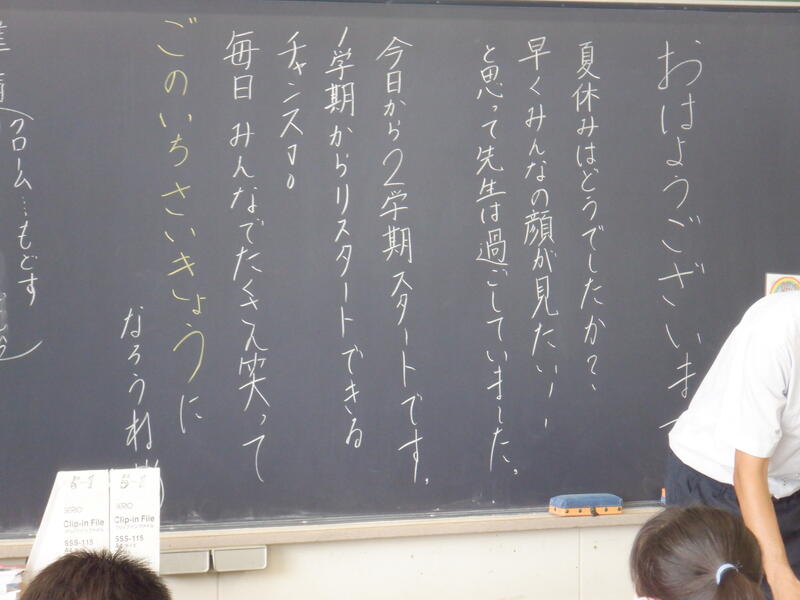 おはようございます
夏休みはどうでしたか?、
早くみんなの顔が見たい!!
と思って先生は過ごしていました。
今日から2学期スタートです。
1学期からリスタートできる
チャンス!!。
毎日みんなでたくさん笑って
ごのいちさいきょうに
なろうね
(クローム…もどす
5-1
5-1
SERIO
Clip-in File
クリップインファイル
SSS-115
SERIO
Clip-in File
クリップインファイル
SSS-115